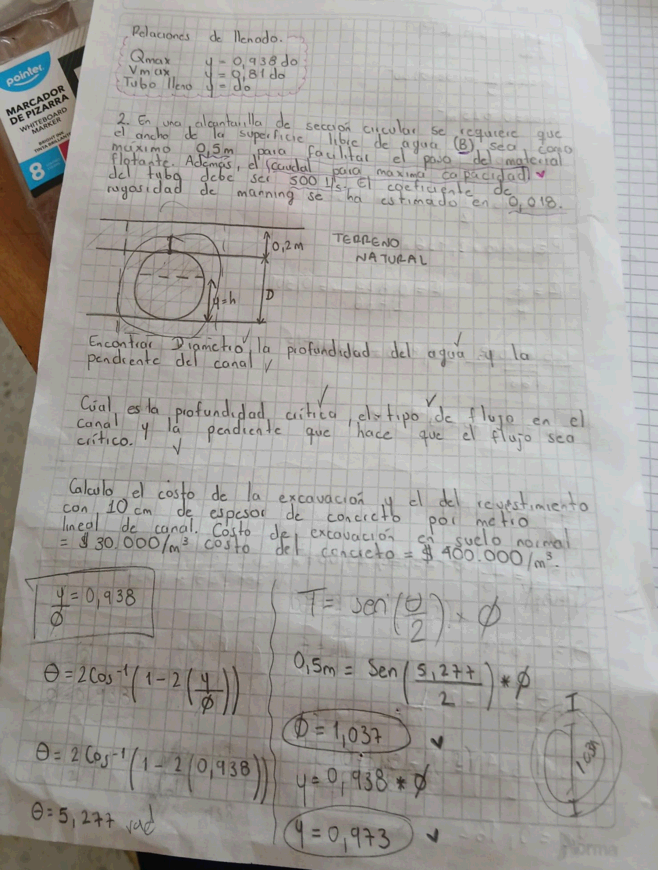 Relaciones de llenado.
Qmax y = 0,938 do
Vmax y = 0,81 do
Tubo lleno y = do
pointer
MARCADOR
DE PIZARRA
WHITEBOARD
MARKER
8
2. En una alcantarilla de sección circular se requiere que
el ancho de la superficie libre de agua (B) sea como
máximo 0,5m para facilitar el paso del material
flotante. Además, el (caudal para maxima capacidad)
del tubo debe ser 500 l/s. El coeficiente de
rugosidad de manning se ha estimado en 0,018.
0,2m
TERRENO
NATURAL
y=h
D
Encontrar Diametro, la profundidad del agua y la
pendiente del canal
Cúal es la profundidad critica, el tipo de flujo en el
canal y la pendiente que hace que el flujo sea
crítico.
Calculo el costo de la excavación y el del revestimiento
con 10 cm de espesor de concreto por metro
lineal de canal. Costo de excavación en suelo normal
= $30.000/m³ costo del concreto = $400.000/m³.
y/Ø = 0,938
θ = 2Cos⁻¹(1-2(y/Ø))
θ = 2Cos⁻¹(1-2(0,938))
θ = 5,277 rad
T = sen(θ/2) * Ø
0,5m = Sen(5,277/2) * Ø
Ø = 1,037
y = 0,938 * Ø
y = 0,973
norma